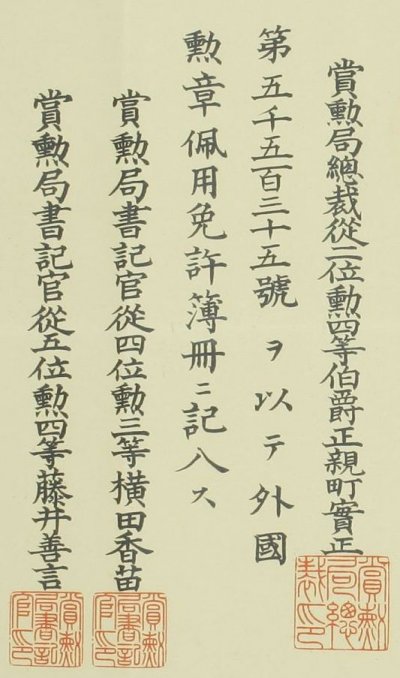 賞勲局總裁從二位勲四等伯爵正親町實正
第五千五百三十五號ヲ以テ外國
勲章佩用免許簿冊ニ記入ス
賞勲局書記官從四位勲三等横田香苗
賞勲局書記官從五位勲四等藤井善言
賞勲局總裁印
賞勲局書記官印
賞勲局書記官印